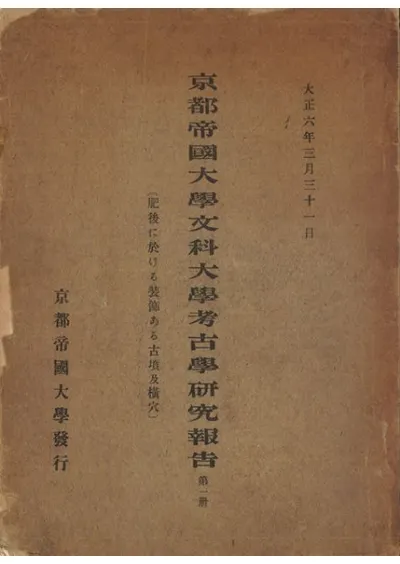 大正六年三月三十一日
京都帝國大學文科大學考古學研究報告 第一册
(肥後に於ける装飾ある古墳及横穴)
京都帝國大學發行